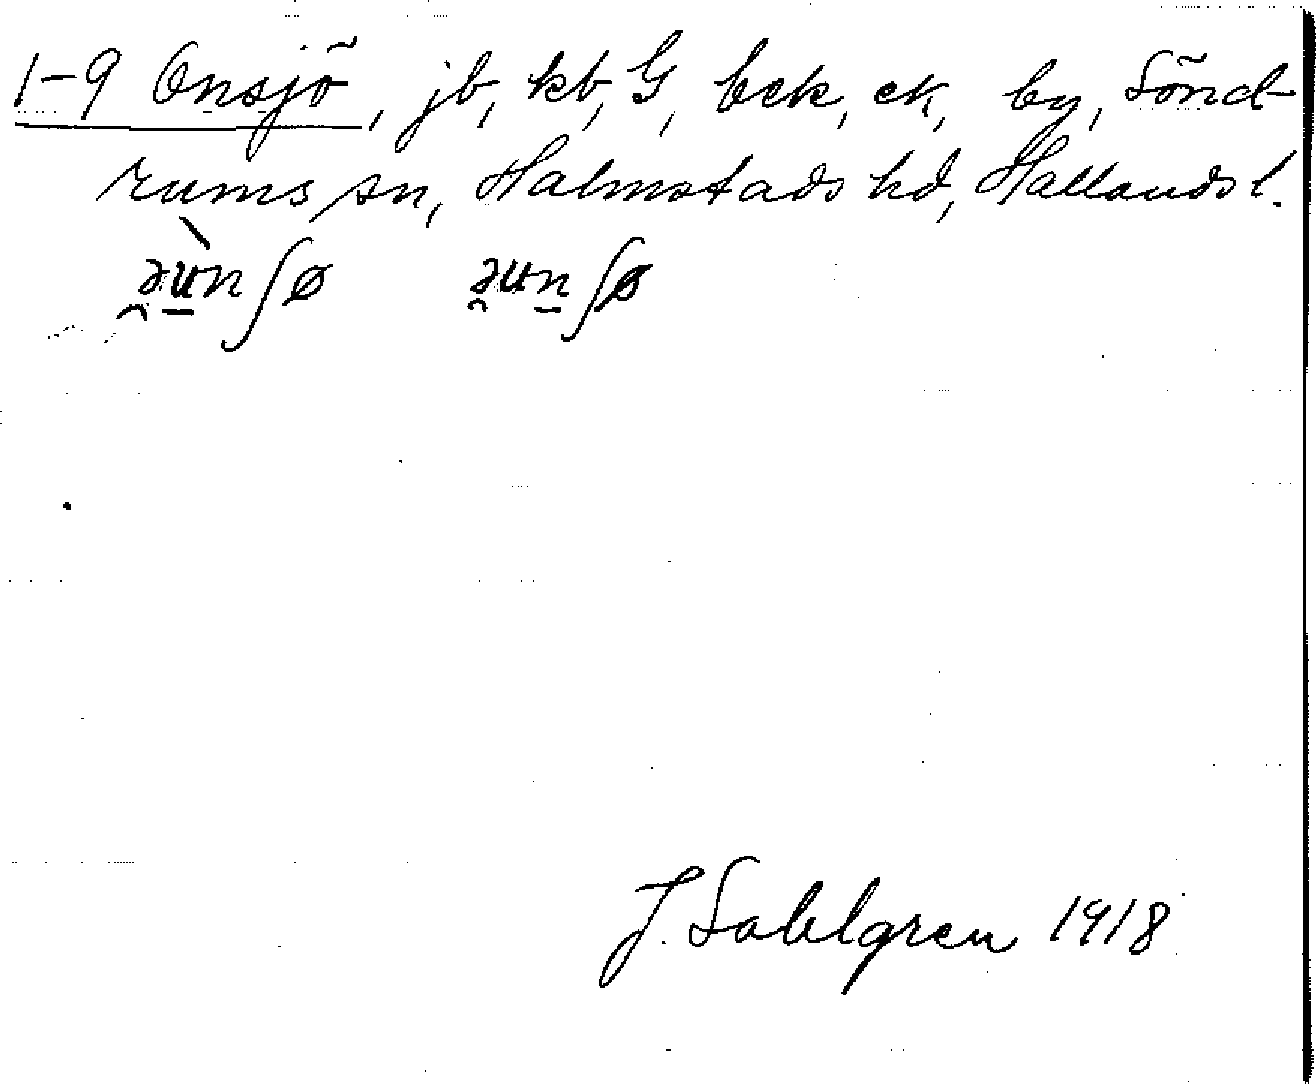 1-9 Onsjö, jb, kb, G, bek, ek, by, Sönd-
rums sn, Halmstads hd, Hallands l.
əu̠nʃø əun̠ʃø
J. Sahlgren 1918